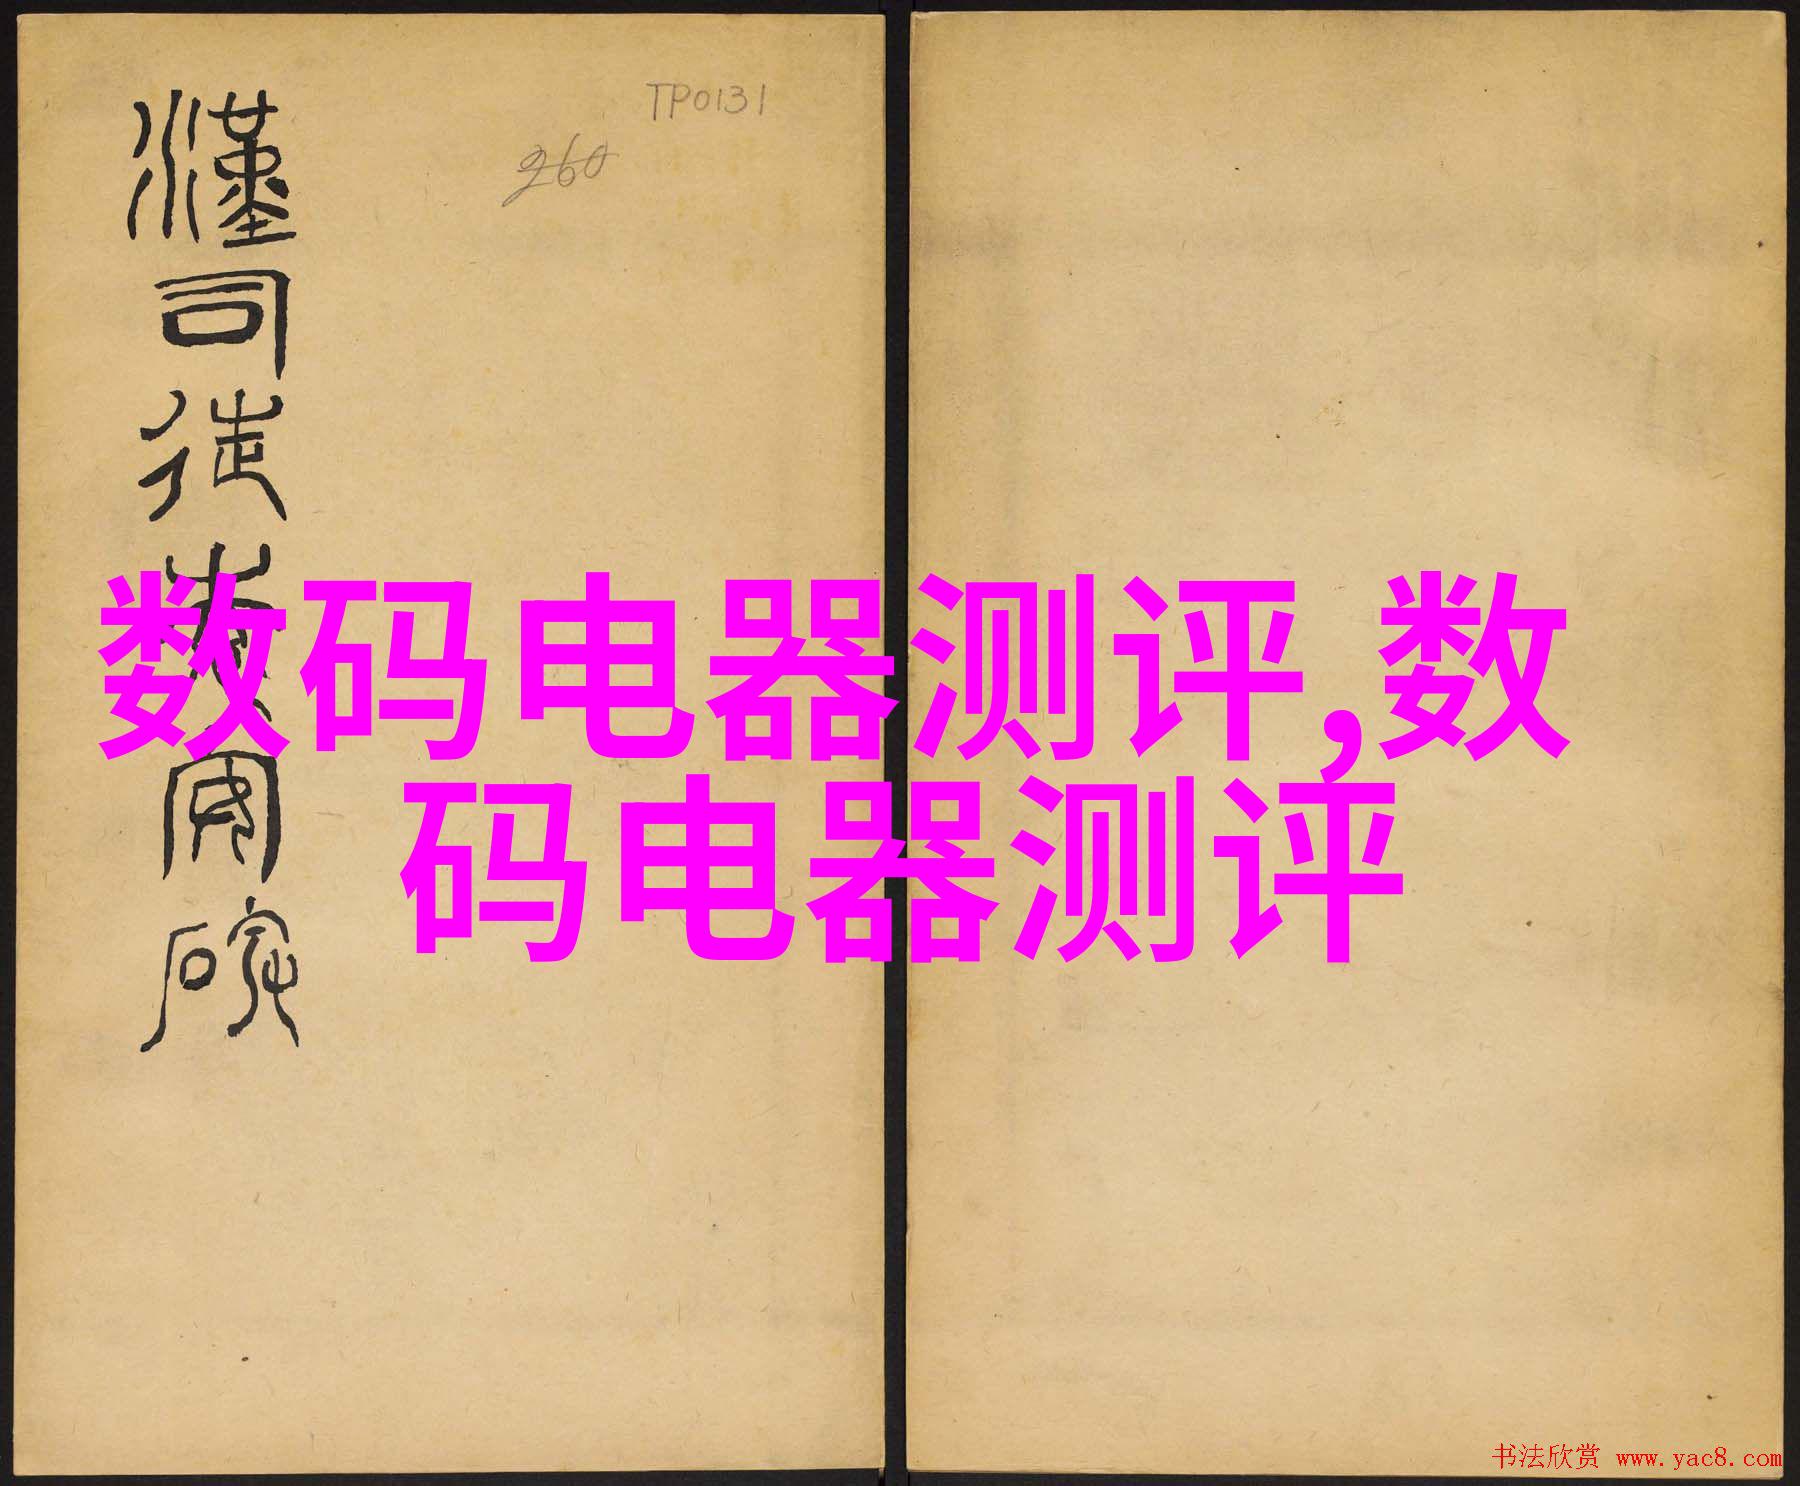 漢司徒袁安碑
TP0131
260
数码电器测评,数
码电器测评
书法欣赏 www.yac8.com